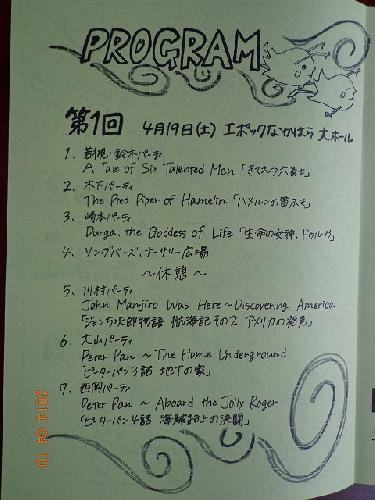 PROGRAM
第1回 4月19日(土) エポックなかはら 大ホール
1. 新規・鈴木パーティ
A Tale of Six Talented Men 「きてれつ六勇士」
2. 木下パーティ
The Pied Piper of Hamelin 「ハメルンの笛ふき」
3. 崎本パーティ
Durga, the Goddess of Life 「生命の女神、ドゥルガ」
4. ソングバーズ、ナーサリー広場
〜休憩〜
5. 川村パーティ
John Manjiro Was Here ~ Discovering America
「ジョン万次郎物語 航海記その2 アメリカの発見」
6. 大山パーティ
Peter Pan ~ The Home Underground
「ピーターパン3話 地下の家」
7. 西岡パーティ
Peter Pan ~ Aboard the Jolly Roger
「ピーターパン4話 海賊船上の決闘」
2014 04 10